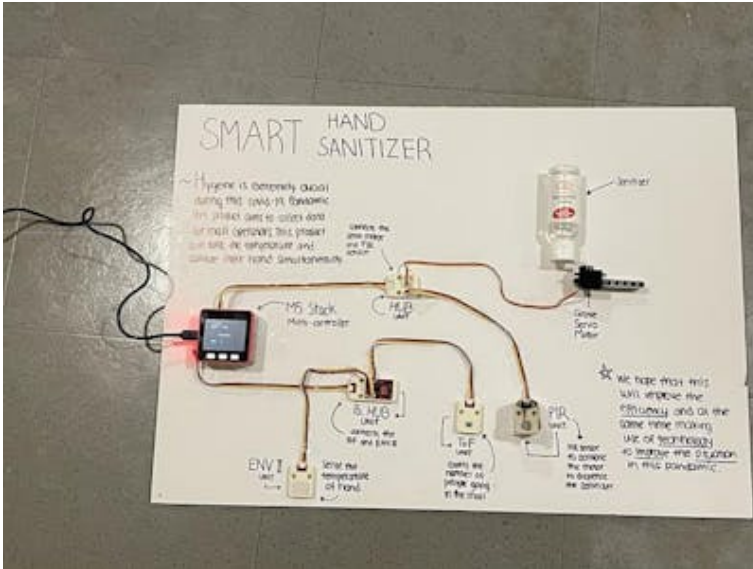 SMART HAND
SANITIZER
~ Hygiene is extremely crucial
during this covid-19 Pandemic
this product aims to collect data
for mall operators. This product
will take the temperature and
sanitize their hand simultaneously
connects the
servo motor
and PIR
sensor
HUB
UNIT
Sanitizer
Grove
Servo
Motor
M5 Stack
Micro-controller
HUB
UNIT
connects the
ToF and ENV II
ENV II
UNIT
Sense the
temperature
of hand
ToF
UNIT
counts the
number of
people going
in the mall
PIR
UNIT
PIR sensor
to activate
the motor
to dispense
the sanitizer
☆ We hope that this
will improve the
efficiency and at the
same time making
use of technology
to improve the situation
in this pandemic.